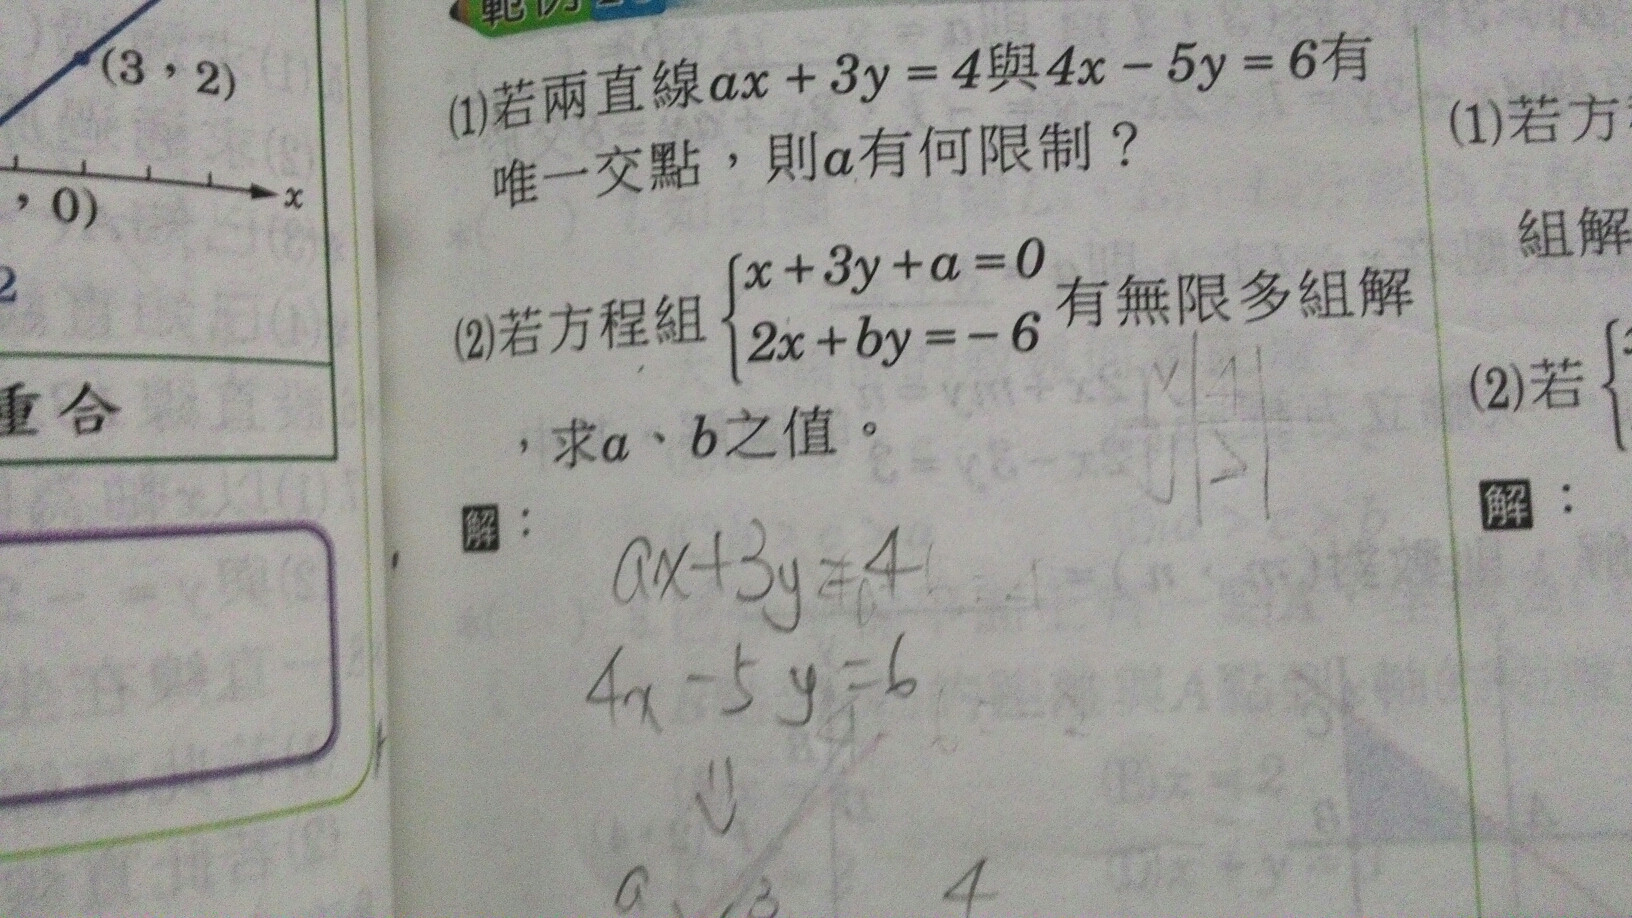 (3，2)
，0)
x
2
重合
範例
(1)若兩直線ax＋3y＝4與4x－5y＝6有
唯一交點，則a有何限制？
(2)若方程組{x＋3y＋a＝0
2x＋by＝－6有無限多組解
，求a、b之值。
解：
ax+3y=4
4x-5y=6
a 3 4
(1)若方
組解
(2)若{
解：